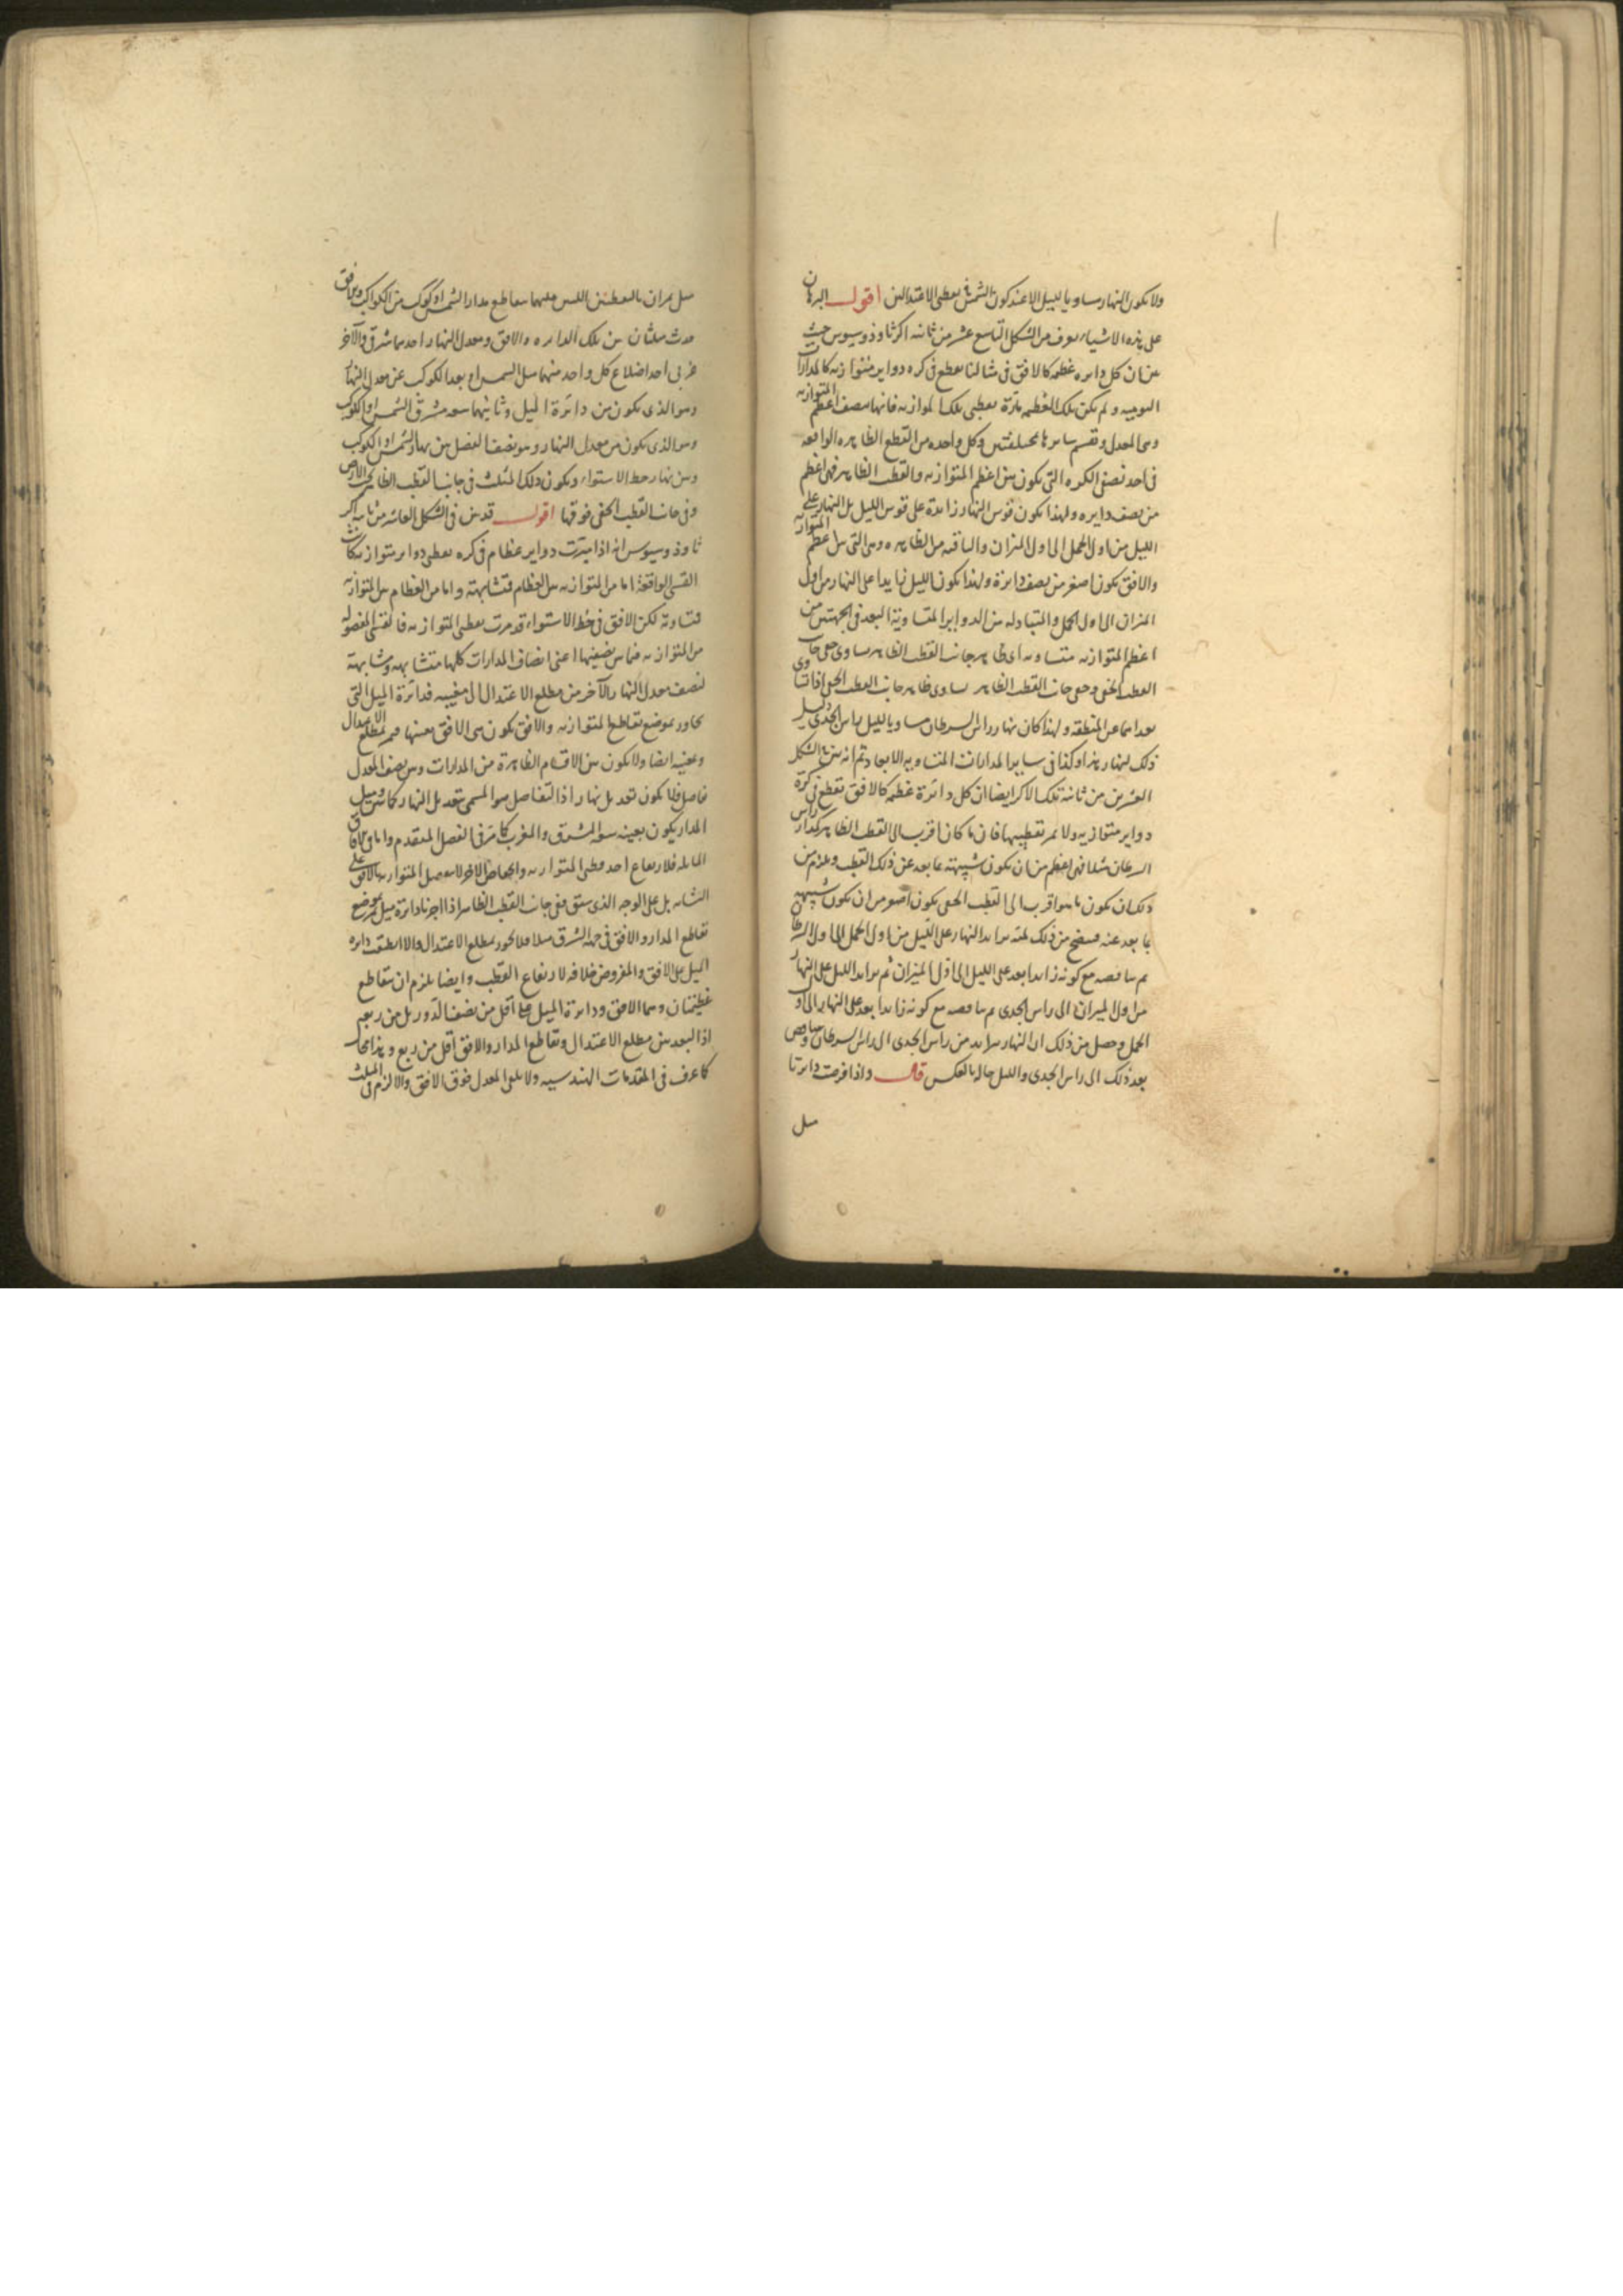 ولا يكون النهار مساويا لليل الا عند كون الشمس فى نقطتى الاعتدالين اقول البرهان
على هذه الاشياء يعرف من الشكل التاسع عشر من ثانية اكر ثاوذوسيوس حيث
بين ان كل دايره عظيمة كالافق فى مثالنا تقطع فى كره دواير متوازية كالمدارات
اليومية ولم تكن تلك العظيمة مارة بقطبى تلك الموازية فانها تنصف اعظم المتوازية
وهى المعدل وتقسم سايرها بمختلفتين وكل واحده من القطع الظاهره الواقعه
فى احد نصفى الكره التى تكون بين اعظم المتوازية والقطب الظاهر فهى اعظم
من نصف دايره ولهذا يكون قوس النهار زائدة على قوس الليل بل النهار على
الليل من اول الحمل الى اول الميزان والباقية من الظاهره وهى التى بين اعظم المتوازية
والافق يكون اصغر من نصف دايرة ولهذا يكون الليل زايدا على النهار من اول
الميزان الى اول الحمل والمتبادله من الدواير المتساوية البعد فى الجهتين من
اعظم المتوازية متساوية اى ظاهر جانب القطب الظاهر يساوى خفى جانب
القطب الخفى وخفى جانب القطب الظاهر يساوى ظاهر جانب القطب الخفى اذا تساوى
بعداهما عن المنطقه ولهذا كان نهار راس السرطان مساويا لليل راس الجدى وليل
ذلك لنهار هذا وكذا فى ساير المدارات المتساويه الابعاد ثم انه بين فى الشكل
العشرين من ثانية تلك الاكر ايضا ان كل دائرة عظيمه كالافق تقطع فى كرة
دواير متوازية ولا تمر بقطبيها فان ما كان اقرب الى القطب الظاهر كمدار راس
السرطان مثلا فهى اعظم من ان يكون شبيهته بما بعد عن ذلك القطب ويلزم من
ذلك ان يكون ما هو اقرب الى القطب الخفى يكون اصغر من ان يكون شبيهة
بما بعد عنه فيتضح من ذلك لميه تزايد النهار على الليل من اول الحمل الى اول السرطان
ثم تناقصه مع كونه زائدا بعد على الليل الى اول الميزان ثم تزايد الليل على النهار
من اول الميزان الى راس الجدى ثم تناقصه مع كونه زايدا بعد على النهار الى اول
الحمل وحصل من ذلك ان النهار يتزايد من راس الجدى الى راس السرطان ويتناقص
بعد ذلك الى راس الجدى والليل حاله بالعكس قال واذا فرضت دايرتا
ميل
ميل تمران بالنقطتين اللتين عليهما تقاطع مدار الشمس او كوكب من الكواكب والافق
حدث مثلثان من تلك الدايره والافق ومعدل النهار احدهما شرقى والآخر
غربى احد اضلاع كل واحد منهما ميل الشمس او بعد الكوكب عن معدل النهار
وهو الذى يكون من دائرة الميل وثانيهما سعة مشرق الشمس او الكوكب
وهو الذى يكون من معدل النهار وهو نصف الفضل بين نهار الشمس او الكوكب
وبين نهار خط الاستواء ويكون ذلك المثلث فى جانب القطب الظاهر تحت الارض
وفى جانب القطب الخفى فوقها اقول قد بين فى الشكل العاشر من ثانية اكر
ثاوذوسيوس انه اذا مرت دواير عظام فى كره بقطبى دواير متوازية كانت
القسى الواقعة اما من المتوازية بين العظام فمتشابهة واما من العظام بين المتوازية
فمتساوية لكن الافق فى خط الاستواء قد مرت بقطبى المتوازية فالقسى المفصوله
من المتوازية فيما بين نصفيها اعنى انصاف المدارات كلها متشابهة ومشابهة
لنصف معدل النهار الآخر من مطلع الاعتدال الى مغيبه فدائرة الميل التى
تجاوز بموضع تقاطع المتوازية والافق يكون هى الافق بعينها فتمر بمطلع الاعتدال
ومغيبه ايضا ولا يكون بين الاقسام الظاهرة من المدارات وبين نصف المعدل
تفاضل فلا يكون تعديل نهار اذ التفاضل هو المسمى بتعديل النهار كما سيجئ وميل
المدار يكون بعينه سعة المشرق والمغرب كما مر فى الفصل المتقدم واما فى الآفاق
المايله فلارتفاع احد قطبى المتوازية وانخفاض الاخر لا يفصل المتوازية بالافق على
التشابه بل على الوجه الذى سبق ففى جانب القطب الظاهر اذا اجزنا دائرة ميل بموضع
تقاطع المدار والافق فى جهة الشرق مثلا فلا تجوز بمطلع الاعتدال والا انطبقت دايره
الميل على الافق والمفروض خلافه لارتفاع القطب وايضا يلزم ان يتقاطع
عظيمتان وهما الافق ودايرة الميل على اقل من نصف الدور بل من ربعه
اذ البعد بين مطلع الاعتدال وتقاطع المدار والافق اقل من ربع وهذا محال
كما عرف فى المقدمات الهندسيه ولا يلقى المعدل فوق الافق والا لزم فى المثلث